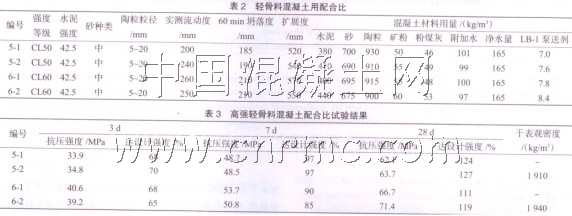 表 2 轻骨料混凝土用配合比
编号 强度等级 水泥强度 砂种类 陶粒粒径/mm 实测流动度/mm 60 min 坍落度/mm 扩展度/mm 混凝土材料用量/(kg/m³)
水泥 砂 陶粒 矿粉 粉煤灰 附加水 净水量 LB-1 泵送剂
5-1 CL50 42.5 中 5~20 200 185 520 380 700 930 50 46 101 165 7.0
5-2 CL50 42.5 中 5~20 240 690 910 49 99 165 7.6
6-1 CL60 42.5 中 5~20 210 695 915 48 100 165 7.8
6-2 CL60 42.5 中 5~20 250 210 550 440 675 900 60 53 97 165 8.4
中国混凝土网
表 3 高强轻骨料混凝土配合比试验结果
编号 3 d 7 d 28 d 干表观密度/(kg/m³)
抗压强度/MPa 达设计强度/% 抗压强度/MPa 达设计强度/% 抗压强度/MPa 达设计强度/%
5-1 33.9 68 48.2 97 124 –
5-2 34.8 70 48.5 97 63.7 127 1 910
6-1 40.6 68 53.7 90 66.7 111 –
6-2 39.2 65 50.8 85 71.4 119 1 940